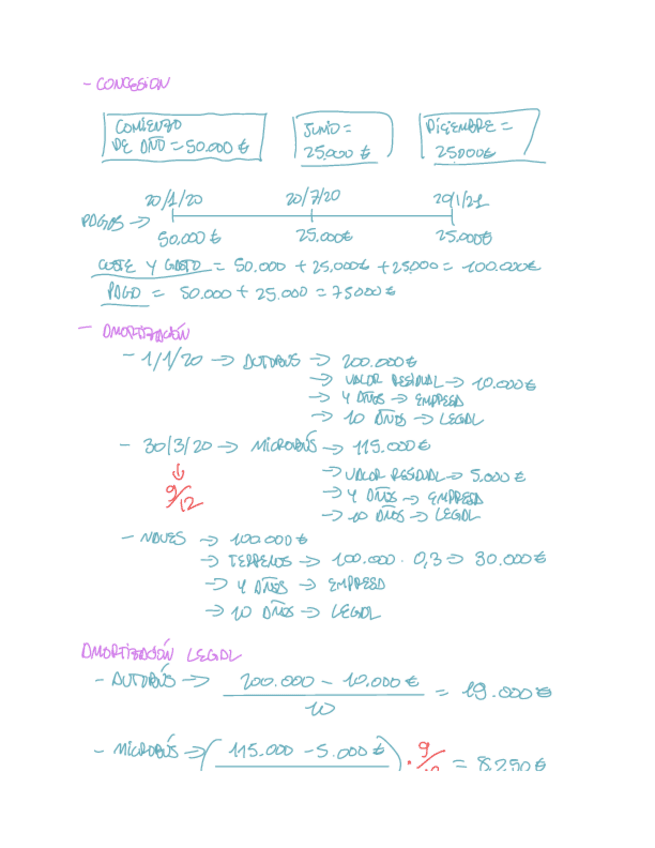 - CONCESION
COMIENZO
DE AÑO = 50.000 €
JUNIO =
25.000 €
DICIEMBRE =
25000€
20/1/20 20/7/20 20/1/21
PAGOS → 50.000 € 25.000€ 25.000€
COSTE Y GASTO = 50.000 + 25.000€ + 25000 = 100.000€
PAGO = 50.000 + 25.000 = 75000 €
- AMORTIZACIÓN
- 1/1/20 → AUTOBUS → 200.000€
→ VALOR RESIDUAL → 10.000€
→ 4 AÑOS → EMPRESA
→ 10 AÑOS → LEGAL
- 30/3/20 → MICROBÚS → 115.000€
↓
9/12
→ VALOR RESIDUAL → 5.000 €
→ 4 AÑOS → EMPRESA
→ 10 AÑOS → LEGAL
- NAVES → 100.000€
→ TERRENOS → 100.000 · 0,3 → 30.000€
→ 4 AÑOS → EMPRESA
→ 10 AÑOS → LEGAL
AMORTIZACIÓN LEGAL
- AUTOBÚS → 200.000 - 10.000 € = 19.000€
10
- MICROBÚS → ( 115.000 - 5.000 € ) · 9/12 = 8.250€